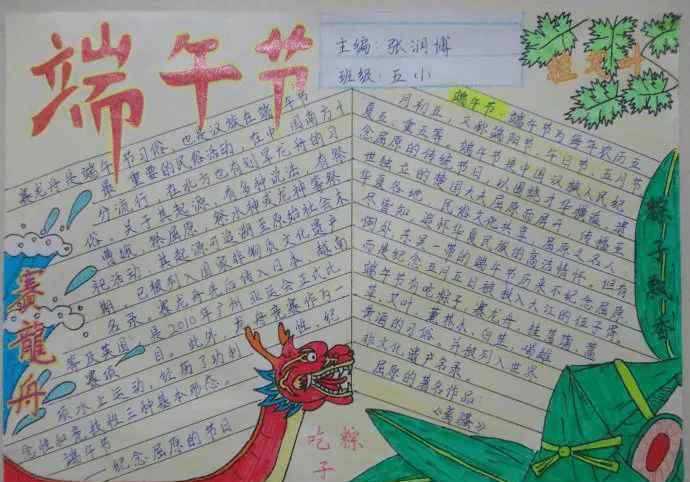 端午节
主编：张润博
班级：五小
赛龙舟是端午节习俗，也是汉族在端午节
最重要的民俗活动，在中国南方十
分流行，在北方也有划旱龙舟的习
俗。关于其起源，有多种说法，有祭
曹娥，祭屈原，祭水神或龙神等祭
祀活动，其起源可追溯至原始社会末
期。已被列入国家非物质文化遗产
名录。赛龙舟先后传入日本、越南
等及英国，是2010年广州亚运会正式比
赛项目。
纪念屈原的节日
端午节，端午节为每年农历五
月初五，又称端阳节、午日节、五月节
夏五、重五等。端午节是中国汉族人民纪
念屈原的传统节日，以围绕才华横溢、遗
世独立的楚国大夫屈原而展开，传播至
华夏各地，民俗文化共享，屈原之名人
尽皆知，追怀华夏民族的高洁情怀。但有
例外，东吴一带的端午节历来不纪念屈原
而是纪念五月五日被投入大江的伍子胥
端午节有吃粽子，赛龙舟，挂菖蒲、蒿
草、艾叶，薰苍术、白芷，喝雄
黄酒的习俗。
屈原的著名作品：
《离骚》
赛龍舟
粽子飘香
吃粽子